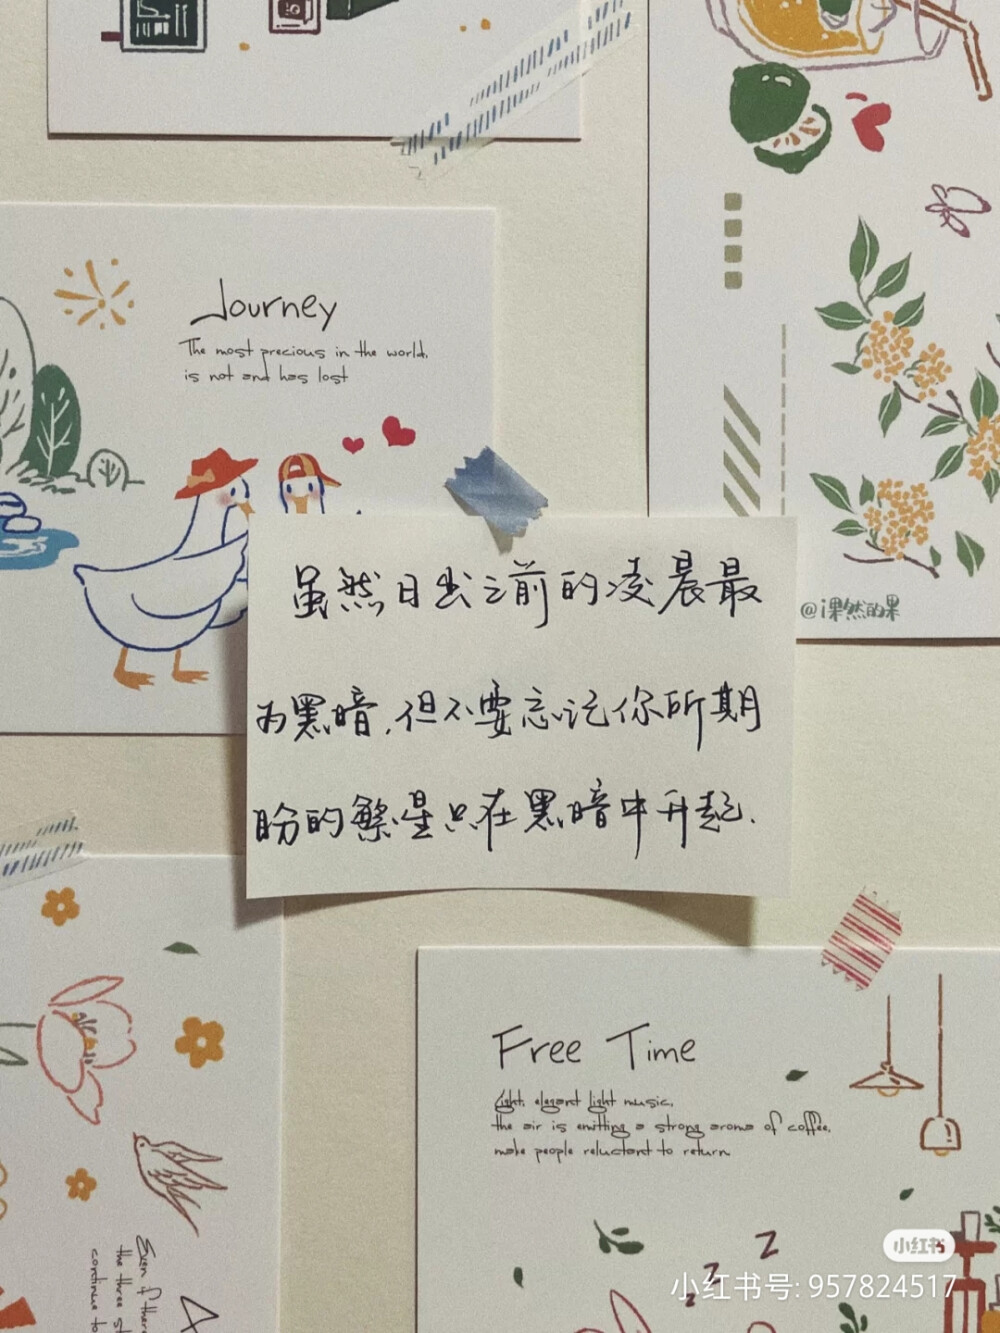 Journey
The most precious in the world,
is not and has lost
虽然日出之前的凌晨最
为黑暗,但不要忘记你所期
盼的繁星只在黑暗中升起.
@i果然的果
Free Time
Light, elegant light music,
the air is emitting a strong aroma of coffee,
make people reluctant to return
Even if there
the three st
continue to
z
z
z
小红书
小红书号: 957824517